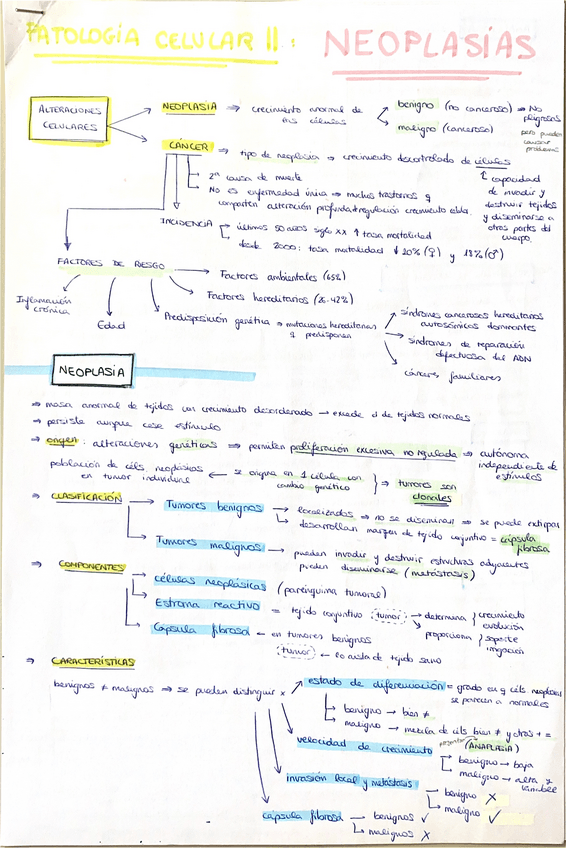 PATOLOGÍA CELULAR II: NEOPLASIAS
ALTERACIONES CELULARES
NEOPLASIA ⇒ crecimiento anormal de las células
benigno (no canceroso) ⇒ No peligrosas
pero pueden causar problemas
maligno (canceroso)
CÁNCER ⇒ tipo de neoplasia → crecimiento descontrolado de células
capacidad de invadir y destruir tejidos y diseminarse a otras partes del cuerpo
2ª causa de muerte
No es enfermedad única → muchos trastornos q
comparten alteración profunda regulación crecimiento
INCIDENCIA
últimos 50 años siglo XX ↑ tasa mortalidad
desde 2000: tasa mortalidad ↓ 20% (♀) y 18% (♂)
FACTORES DE RIESGO
Factores ambientales (65%)
Factores hereditarios (26-42%)
Predisposición genética ⇒ mutaciones hereditarias q predisponen
síndromes cancerosos hereditarios autosómicos dominantes
síndromes de reparación defectuosa del ADN
cánceres familiares
Edad
Inflamación crónica
NEOPLASIA
⇒ masa anormal de tejidos con crecimiento desordenado → excede al de tejidos normales
⇒ persiste aunque cese estímulo
⇒ origen: alteraciones genéticas ⇒ permiten proliferación excesiva no regulada ⇒ autónoma
independiente de estímulos
población de céls. neoplásicas en tumor individual ← se origina en 1 célula con cambio genético } ⇒ tumores son clonales
⇒ CLASIFICACIÓN
Tumores benignos
localizados ⇒ no se diseminan ⇒ se puede extirpar
desarrollan margen de tejido conjuntivo = cápsula fibrosa
Tumores malignos → pueden invadir y destruir estructuras adyacentes
pueden diseminarse (metástasis)
⇒ COMPONENTES
células neoplásicas (parénquima tumoral)
Estroma reactivo = tejido conjuntivo (tumor) → determina } crecimiento evolución
proporciona } soporte irrigación
Cápsula fibrosa ← en tumores benignos
(tumor) ← lo aísla de tejido sano
⇒ CARACTERÍSTICAS
benignos ≠ malignos ⇒ se pueden distinguir x
estado de diferenciación = grado en q céls. neoplásicas
se parecen a normales
benigno → bien ≠
maligno → mezcla de céls bien ≠ y otras + =
(ANAPLASIA)
velocidad de crecimiento
benigno → baja
maligno → alta y variable
invasión local y metástasis
benigno X
maligno ✓
cápsula fibrosa
benignos ✓
malignos X